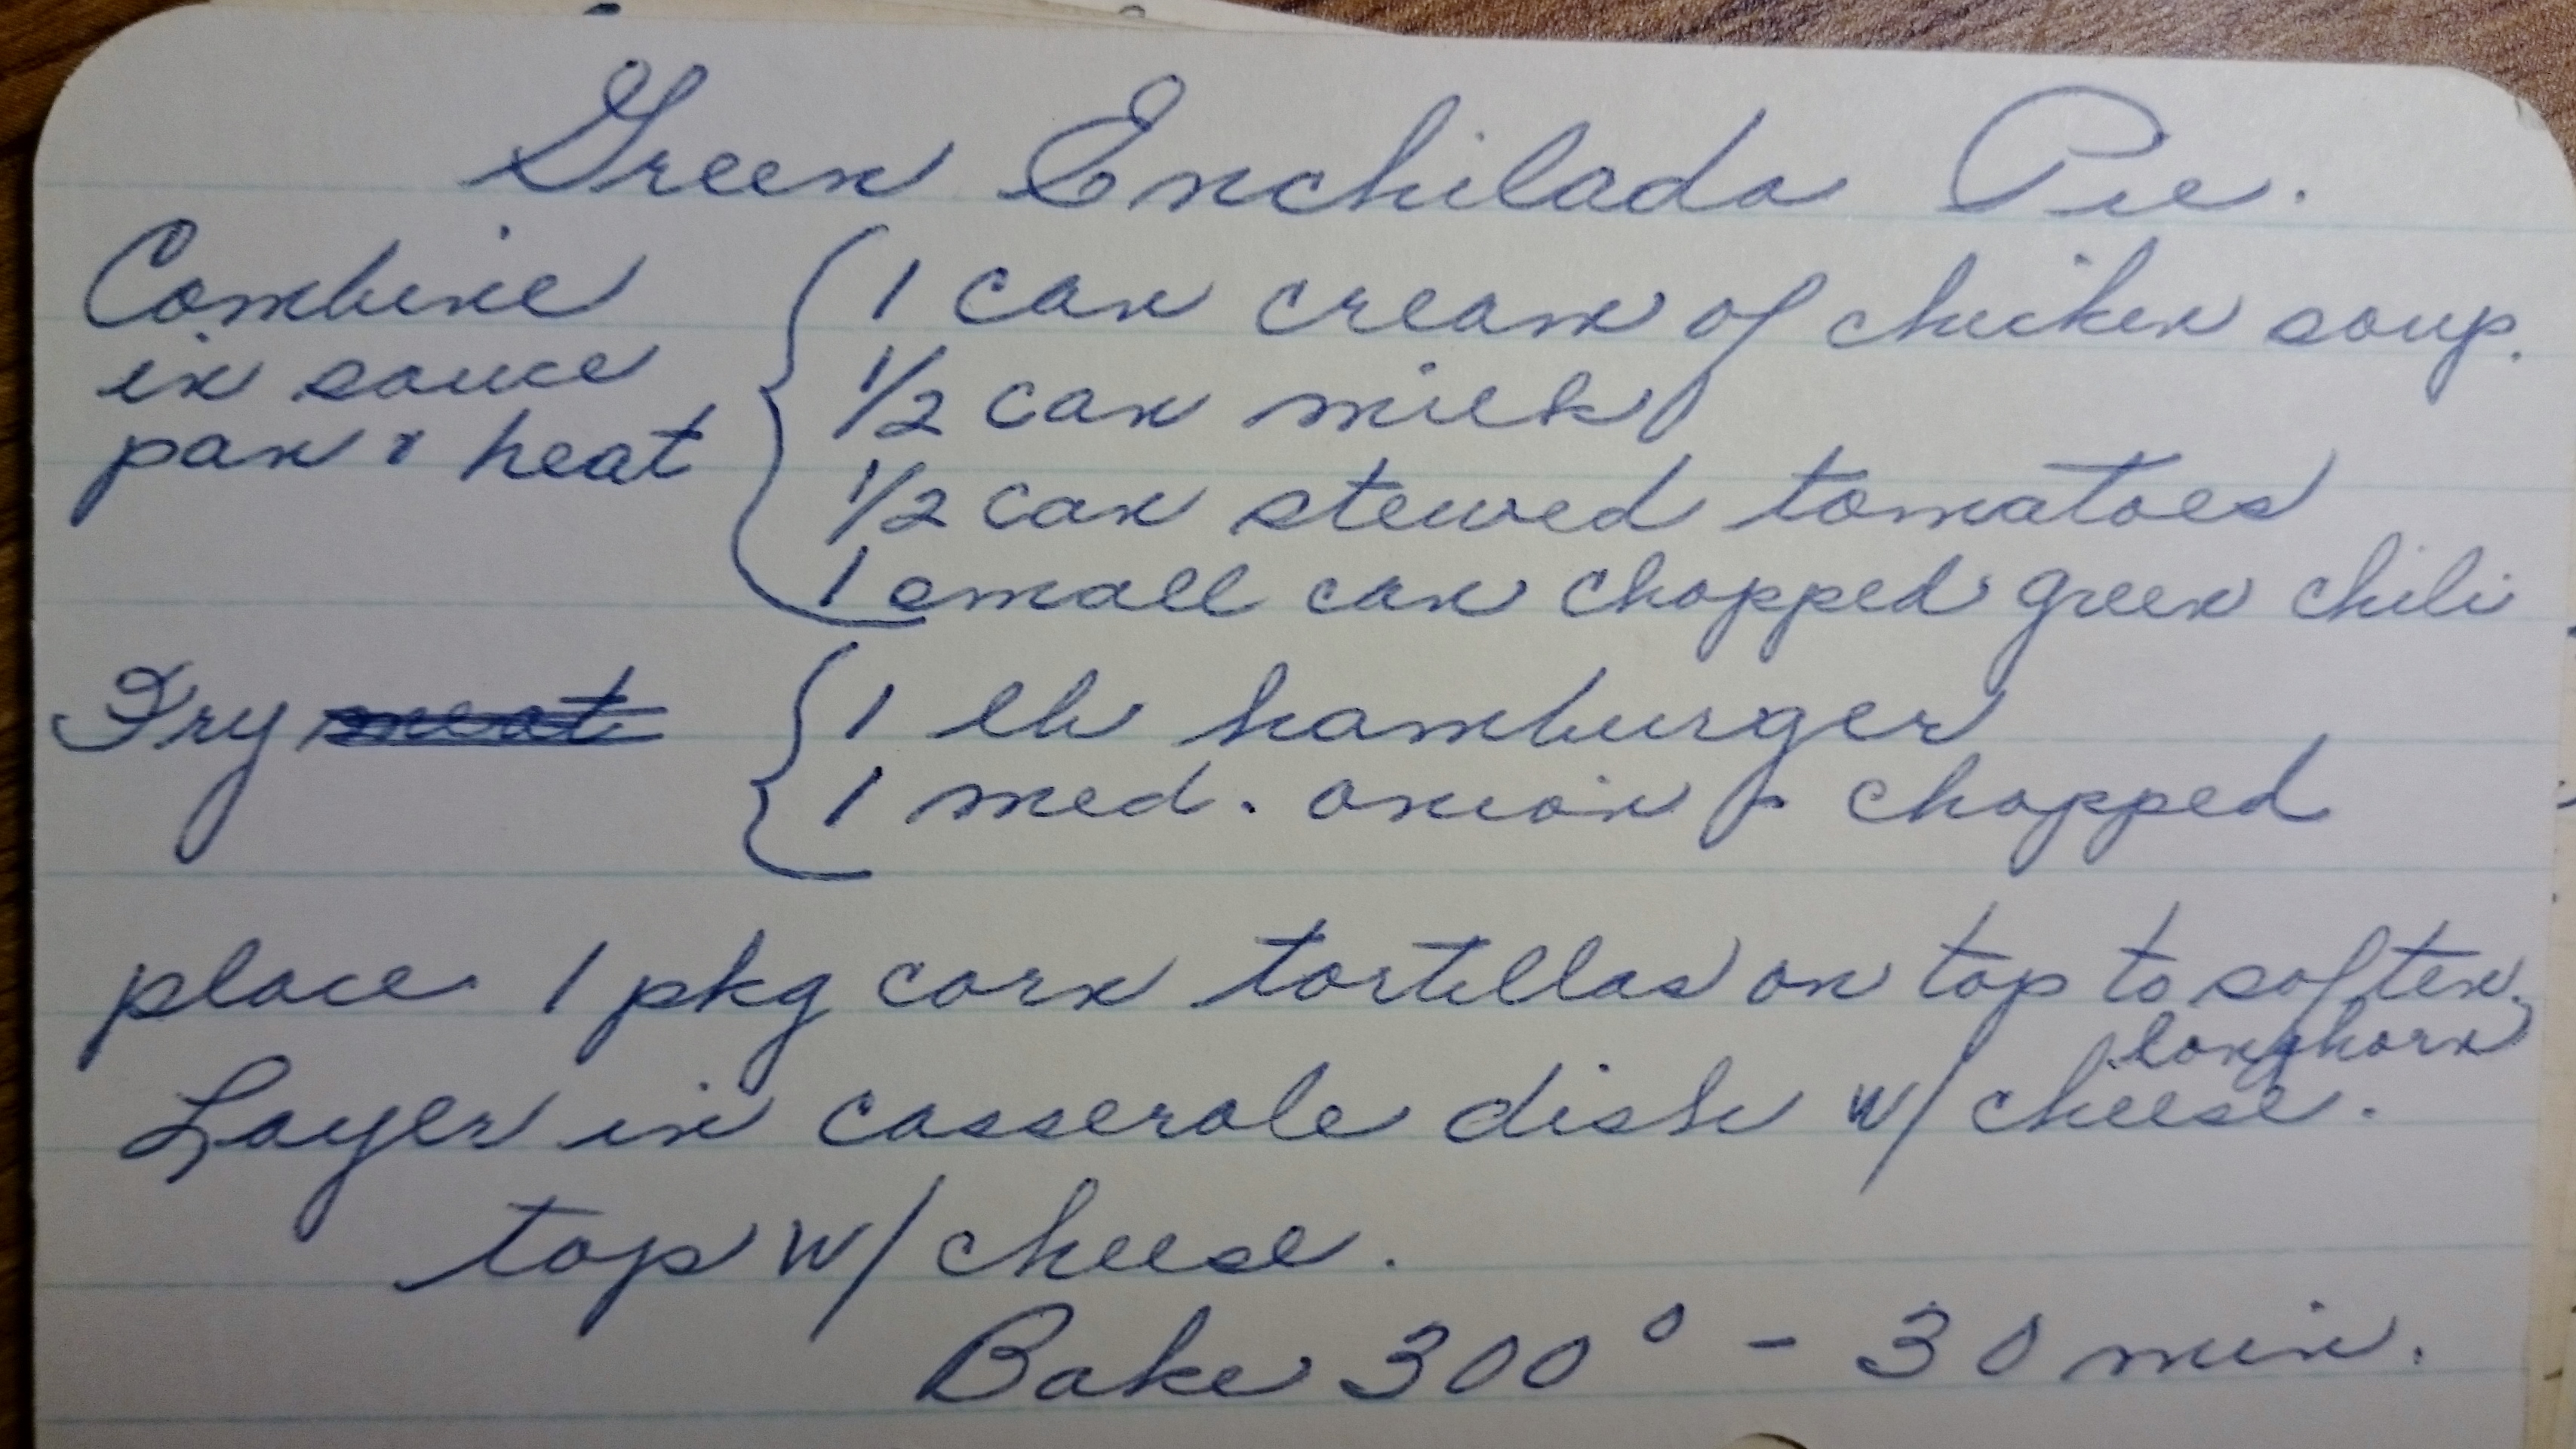 Green Enchilada Pie.
Combine in sauce pan & heat
1 can cream of chicken soup.
1/2 can milk
1/2 can stewed tomatoes
1 small can chopped green chili
Fry
1 lb hamburger
1 med. onion - chopped
place 1 pkg corn tortillas on top to soften.
Layer in casserole dish w/ longhorn cheese.
top w/ cheese.
Bake 300° - 30 min.